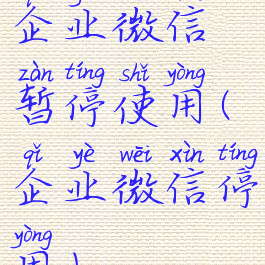 企业微信
zàn tíng shǐ yòng
暂停使用(
qǐ yè wēi xìn tíng
企业微信停
yòng
用)